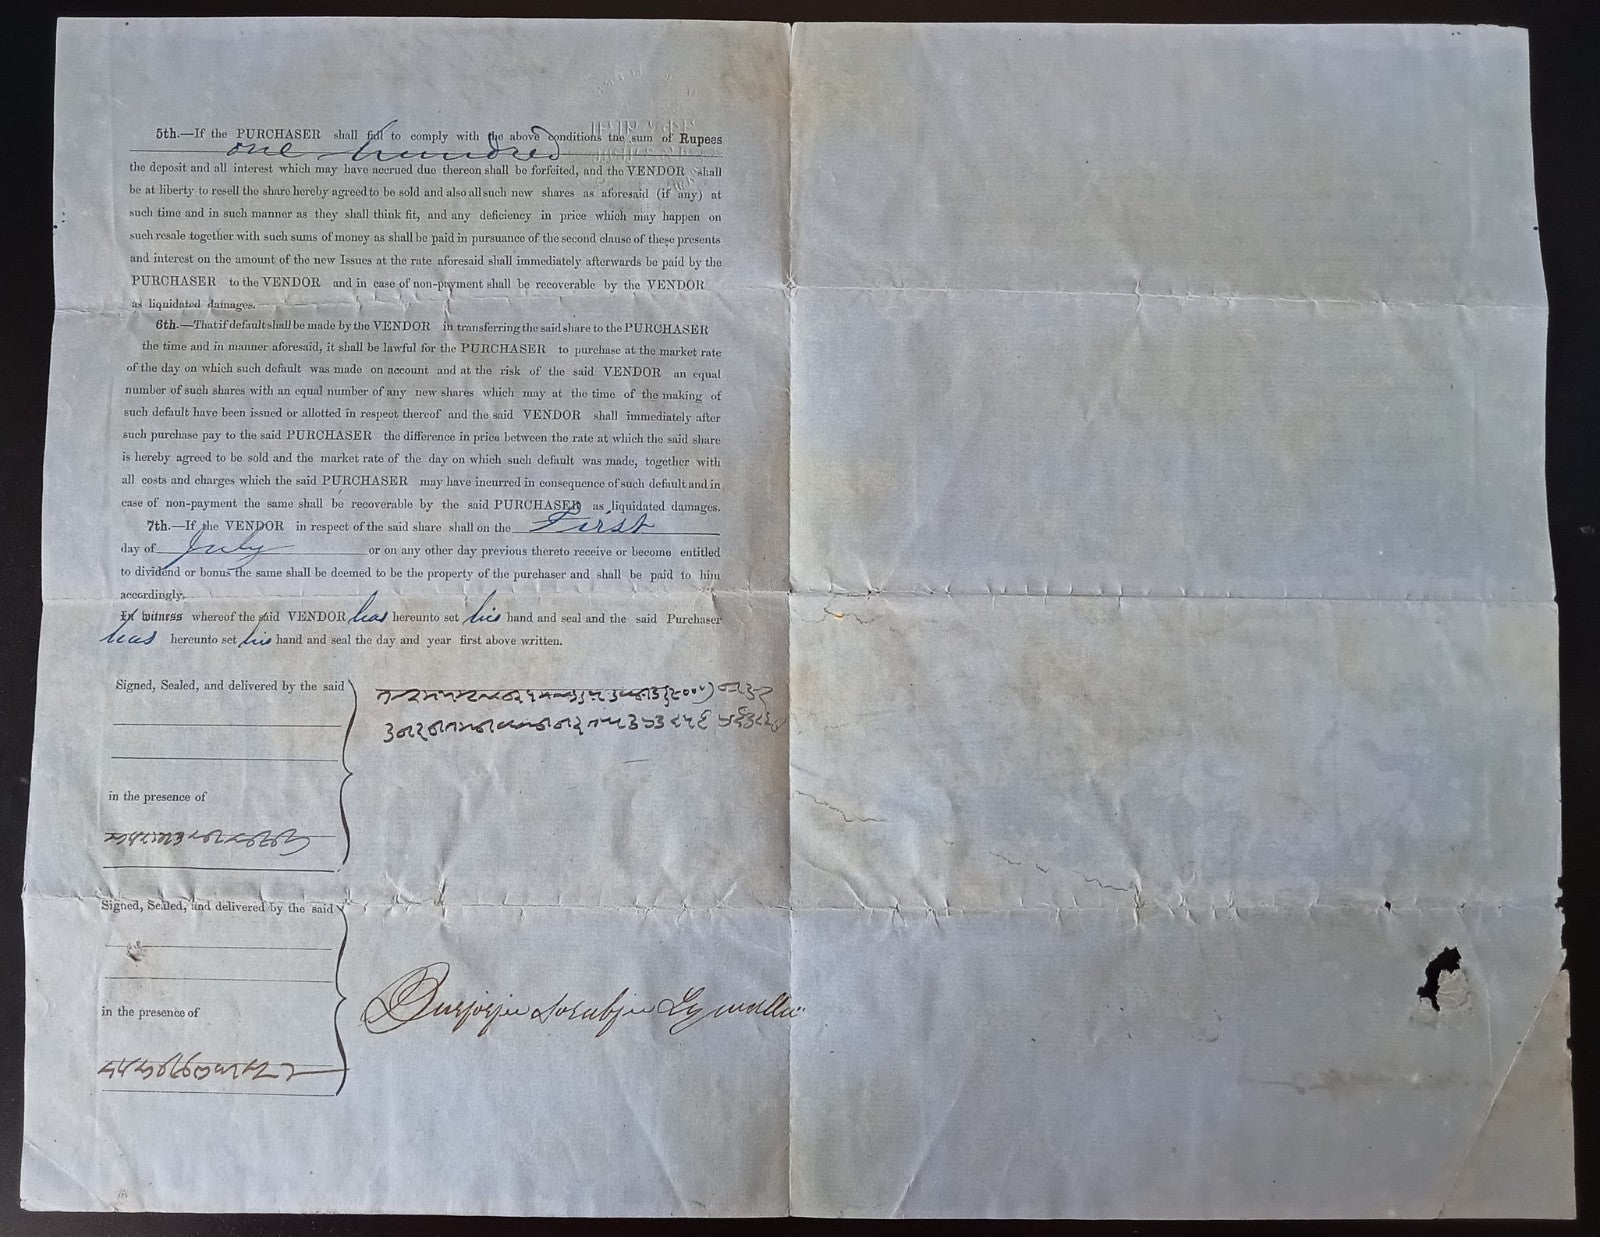 5th.—If the PURCHASER shall fail to comply with the above conditions the sum of Rupees
one hundred
the deposit and all interest which may have accrued due thereon shall be forfeited, and the VENDOR shall
be at liberty to resell the share hereby agreed to be sold and also all such new shares as aforesaid (if any) at
such time and in such manner as they shall think fit, and any deficiency in price which may happen on
such resale together with such sums of money as shall be paid in pursuance of the second clause of these presents
and interest on the amount of the new Issues at the rate aforesaid shall immediately afterwards be paid by the
PURCHASER to the VENDOR and in case of non-payment shall be recoverable by the VENDOR
as liquidated damages.
6th.—That if default shall be made by the VENDOR in transferring the said share to the PURCHASER
the time and in manner aforesaid, it shall be lawful for the PURCHASER to purchase at the market rate
of the day on which such default was made on account and at the risk of the said VENDOR an equal
number of such shares with an equal number of any new shares which may at the time of the making of
such default have been issued or allotted in respect thereof and the said VENDOR shall immediately after
such purchase pay to the said PURCHASER the difference in price between the rate at which the said share
is hereby agreed to be sold and the market rate of the day on which such default was made, together with
all costs and charges which the said PURCHASER may have incurred in consequence of such default and in
case of non-payment the same shall be recoverable by the said PURCHASER as liquidated damages.
7th.—If the VENDOR in respect of the said share shall on the First
day of July or on any other day previous thereto receive or become entitled
to dividend or bonus the same shall be deemed to be the property of the purchaser and shall be paid to him
accordingly.
In witness whereof the said VENDOR has hereunto set his hand and seal and the said Purchaser
has hereunto set his hand and seal the day and year first above written.
Signed, Sealed, and delivered by the said
in the presence of
Signed, Sealed, and delivered by the said
in the presence of
Burjorjee Sorabjee